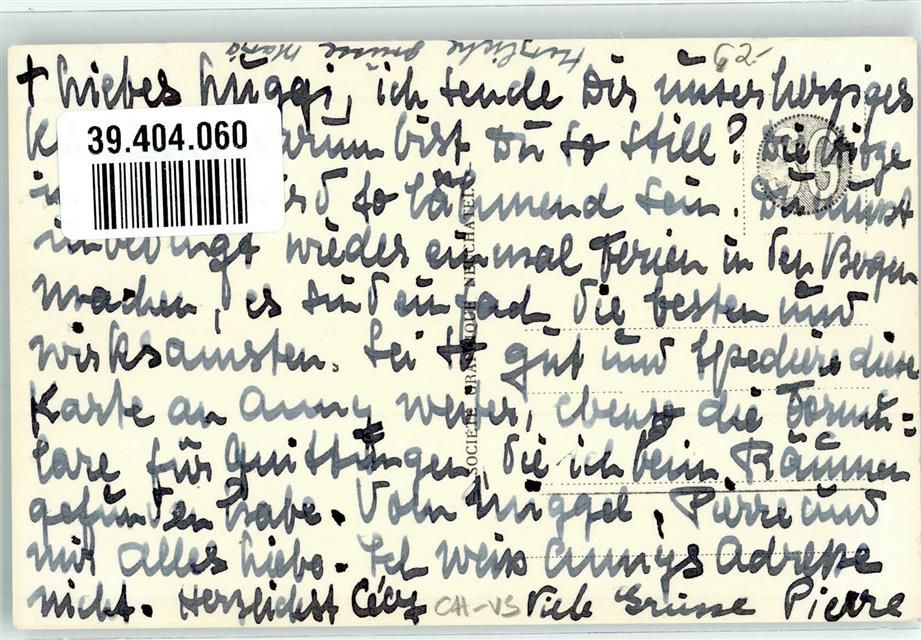 Herzliche Grüsse Maria
+ Liebes Luggi, ich sende Dir unser herziges
39.404.060
warum bist Du so still? Die Hitze
wird so lähmend sein. Du musst
unbedingt wieder einmal Ferien in den Bergen
machen, es sind eunfach die besten und
wirksamsten. Sei so gut und spediere diese
Karte an Anny weiter, ebenso die Formu=
lare für Quittungen, die ich beim Räumen
gefunden habe. Vom Miggel, Pierre und
mir alles Liebe. Ich weiss Annys Adresse
nicht. Herzlichst Cécy CH-VS Viele Grüsse Pierre
SOCIÉTÉ GRAPHIQUE NEUCHATEL
SG